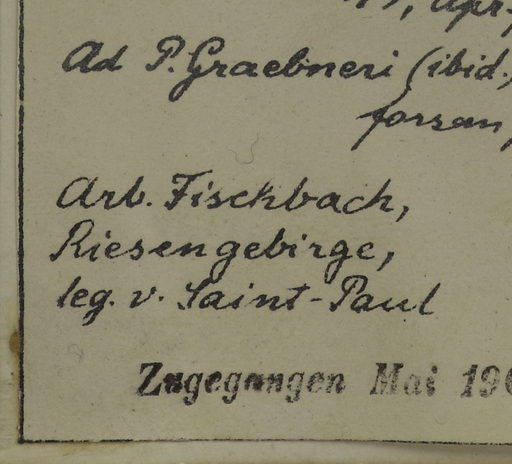 Ad P. Graebneri (ibid.,
forsan
Arb. Fischbach,
Riesengebirge,
leg. v. Saint-Paul
Zugegangen Mai